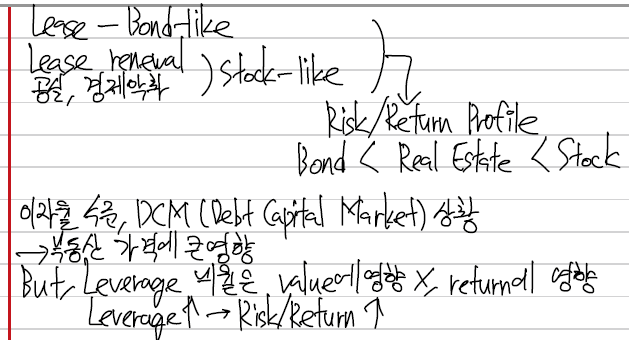 Lease - Bond-like
Lease renewal
공실, 경제악화 ) Stock-like
Risk/Return Profile
Bond < Real Estate < Stock
이자율 수준, DCM (Debt Capital Market) 상황
→ 부동산 가격에 큰영향
But, Leverage 비율은 value에 영향 X, return에 영향
Leverage↑ → Risk/Return ↑